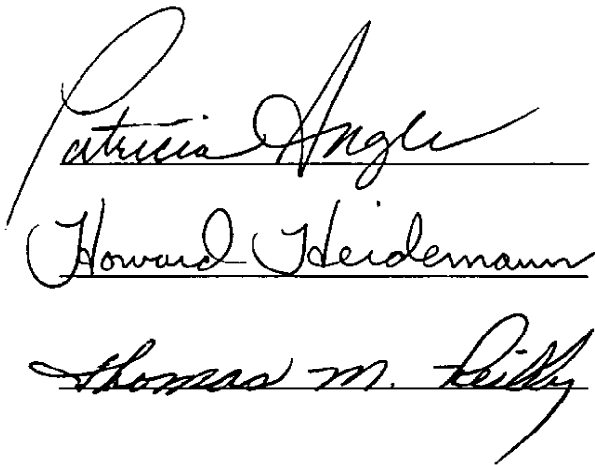 Patricia Angle
Howard Heidemann
Thomas M. Reilly